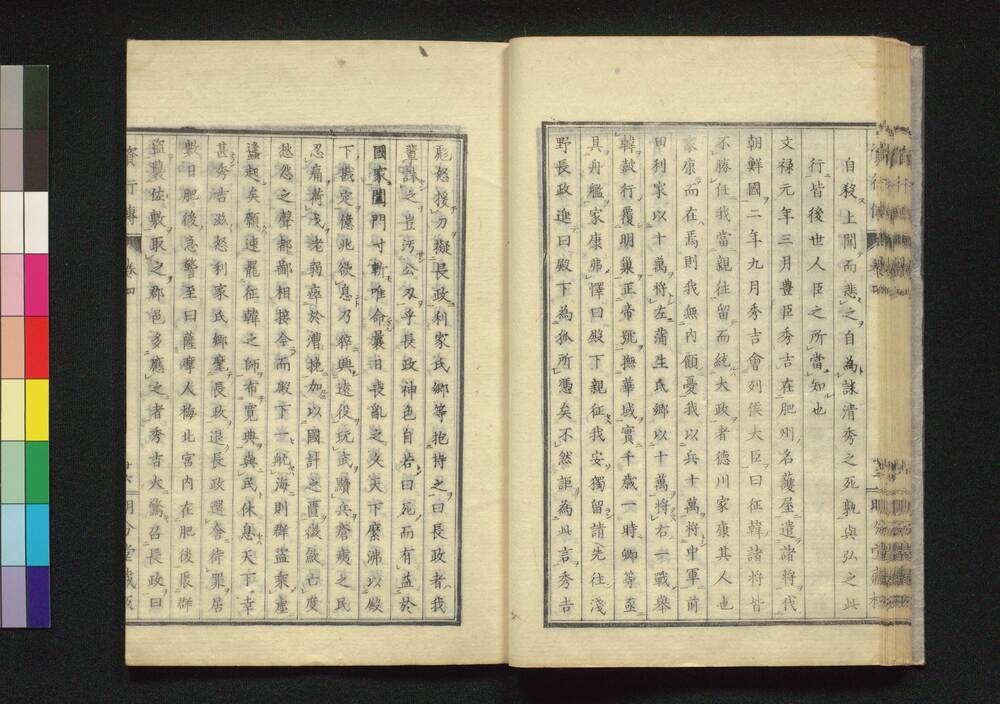 自殺上聞而悲之自為誄清秀之死孰與弘之此
行皆後世人臣之所當知也
文祿元年三月豊臣秀吉在肥州名護屋遣諸将伐
朝鮮國二年九月秀吉會列侯大臣曰征韓諸将皆
不勝任我當親往留而統大政者德川家康其人也
家康而在焉則我無内顧憂我以兵十萬将中軍前
田利家以十萬将左蒲生氏郷以十萬将右一戰舉
韓鼓行覆明巢正帝號撫華域實千歳一時卿等亟
具舟艦家康弗懌曰殿下親征我安獨留請先往淺
野長政進曰殿下為狐所憑矣不然詎為此言秀吉
彪怒援刀擬長政利家氏郷等抱持之曰長政者我
輩誅之豈污公刃乎長政神色自若曰死而有益於
國家闔門寸斬唯命曩日喪亂之久天下糜沸以殿
下戡定億兆欲息乃猝興遠役玩武黷兵瘡痍之民
忍痛荷戈老弱瘁於漕輓加以國計之匱徴歛亡度
愁怨之聲都鄙相接今而殿下一航海則群盜乘虛
蜂起矣願速罷征韓之師布寛典與民休息天下幸
甚秀吉滋怒利家氏郷麾長政退長政還舎待罪居
數日肥後急警至曰薩摩人梅北宮内在肥後聚群
盜襲佐敷取之郡邑多應之者秀吉大驚召長政曰